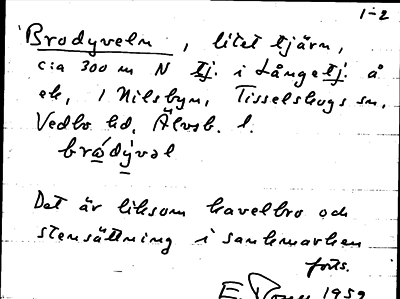 1-2
Brodyveln, litet tjärn,
c:a 300 m N tj. i Långetj. å
ek, 1 Nilsbyn, Tisselskogs sn,
Vedbo hd, Älvsb. l.
brodyvəl
Det är liksom kavelbro och
stensättning i sankmarken
forts.
E. 1959